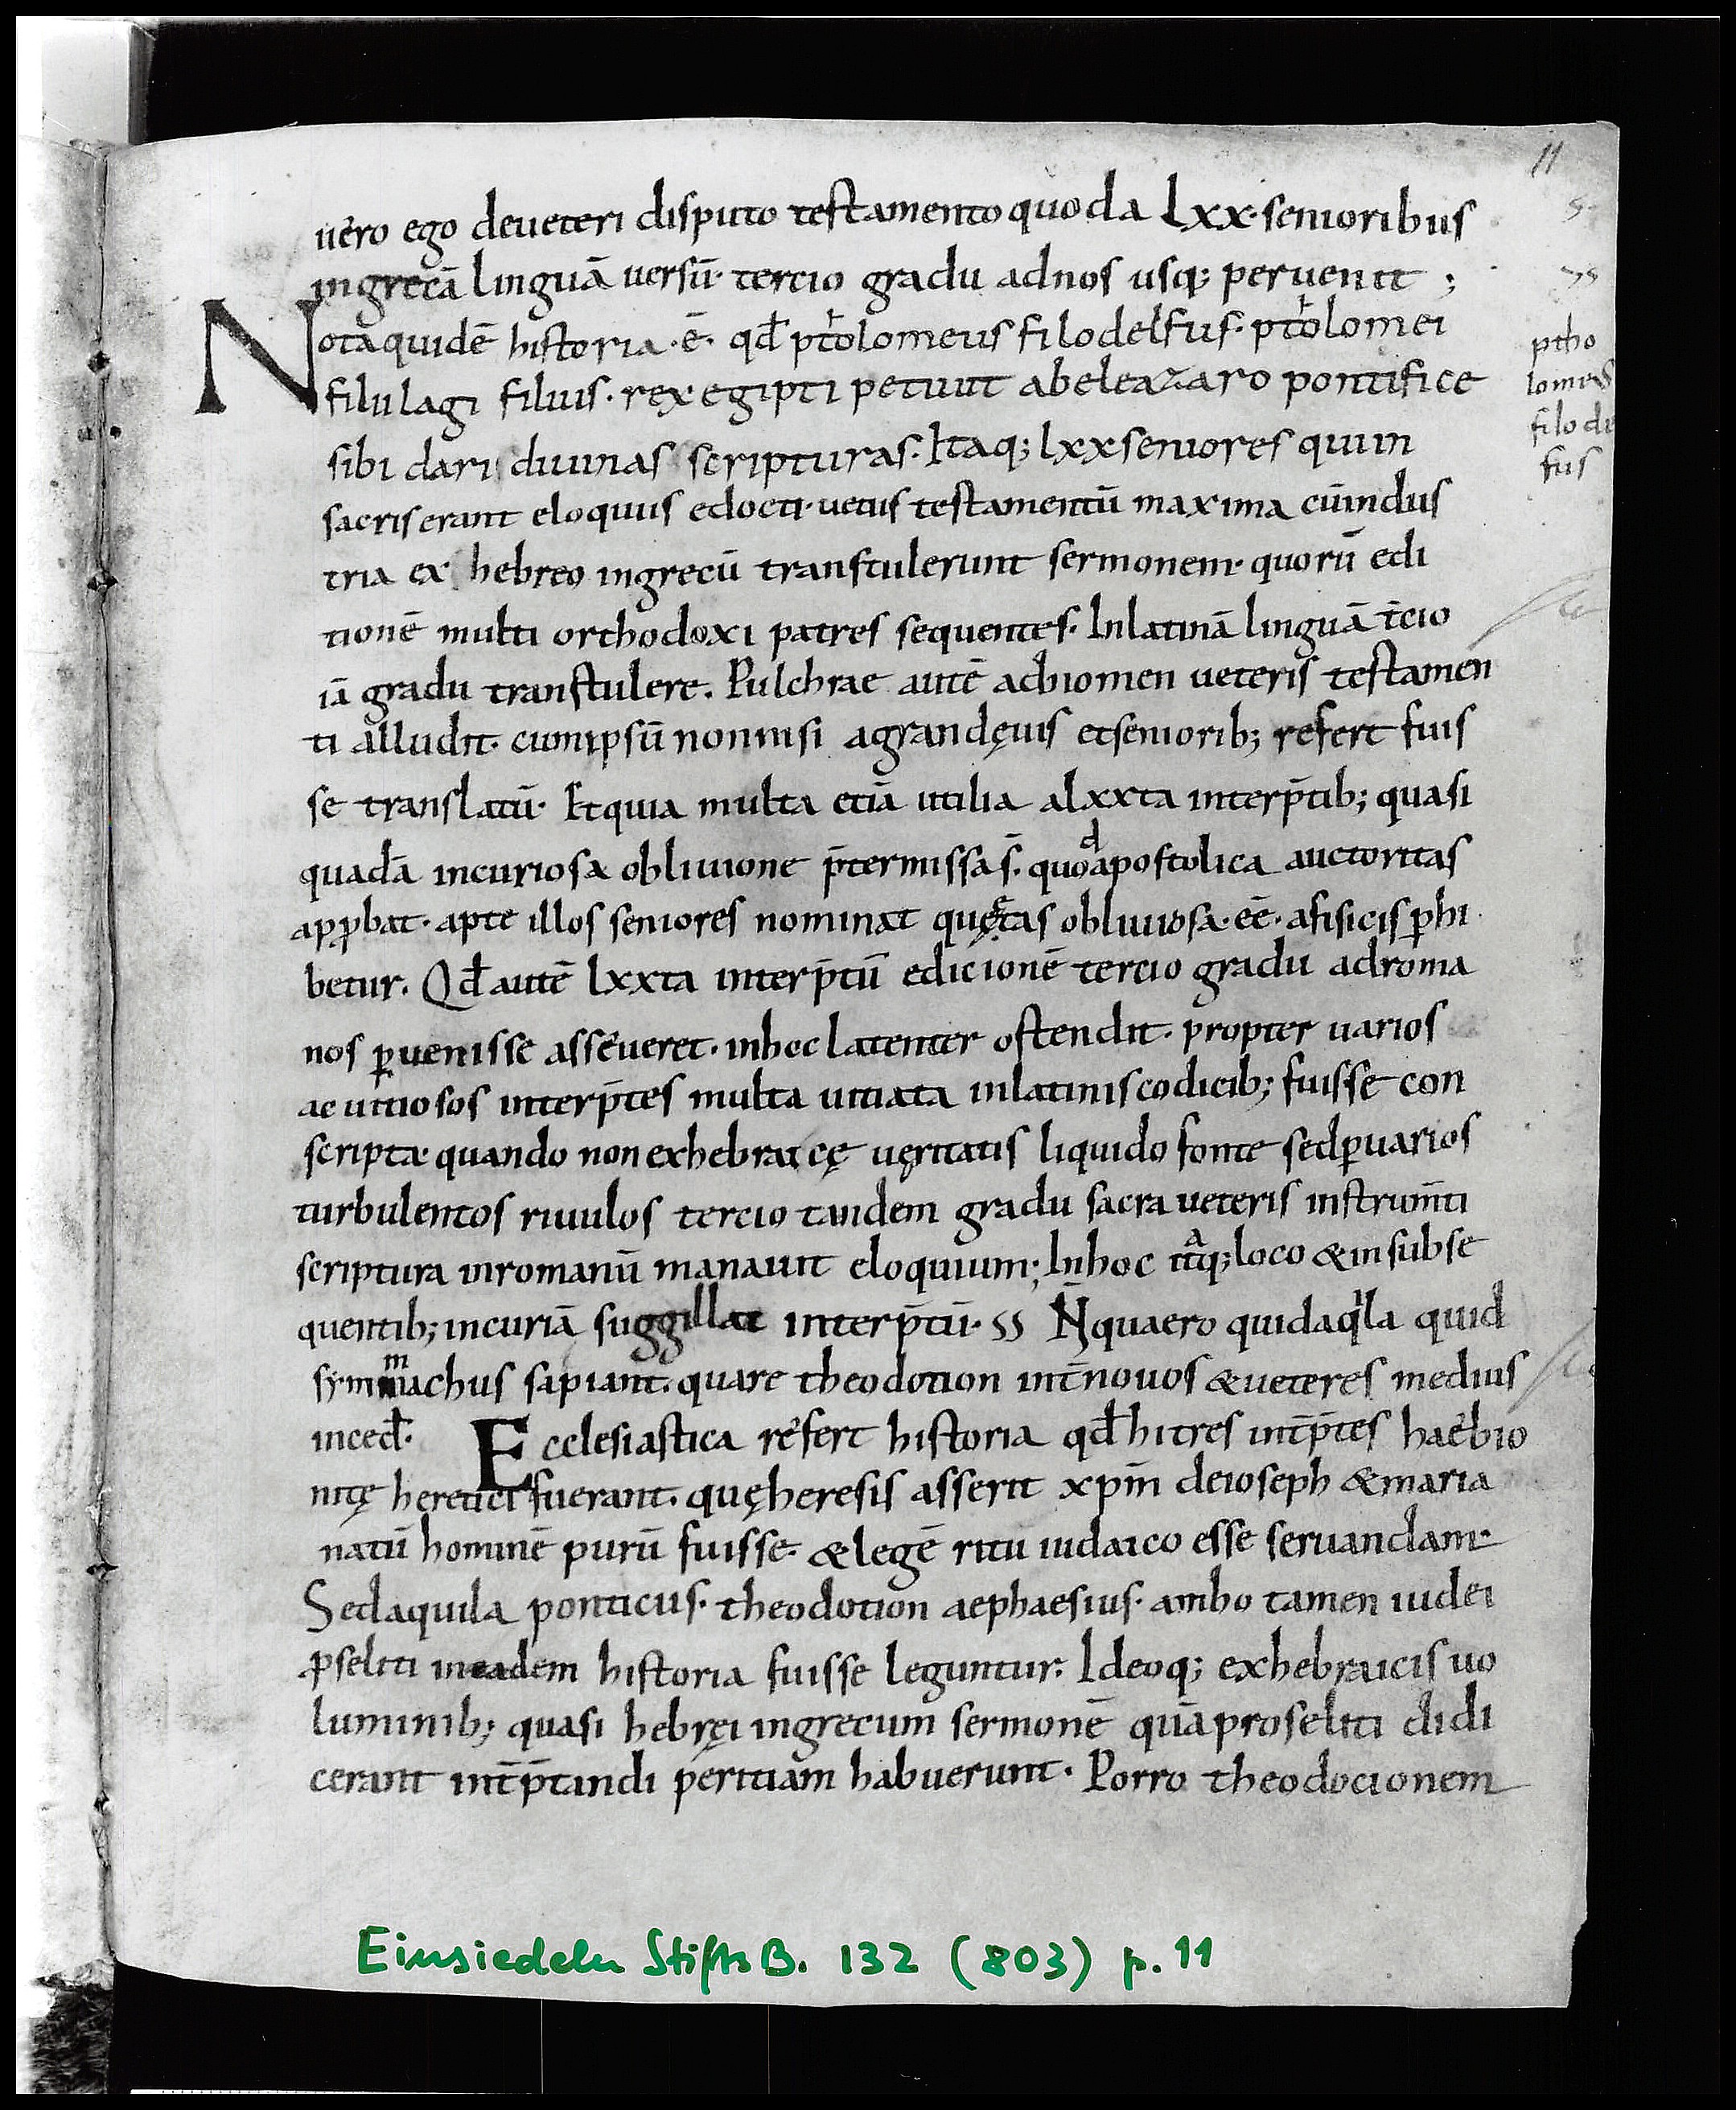 11
uero ego deueteri disputo testamento quod a lxx· senioribus
ingrecā linguā uersū· tercio gradu adnos usq; peruenit ;
Nota quidē historia ·ē· qd̄ ptholomeus filodelfus· ptholomei
filii lagi filius· rex egipti petiuit abeleazaro pontifice
sibi dari diuinas scripturas. Itaq; lxx seniores qui in
sacris erant eloquiis edocti· uetus testamentū maxima cū indus
tria ex hebreo ingrecū transtulerunt sermonem· quorū edi
tionē multi orthodoxi patres sequentes· Inlatinā linguā t̄cio
iā gradu transtulere. Pulchrae autē adnomen ueteris testamen
ti alludit· cum ipsū nonnisi agrandęuis etseniorib; refert fuis
se translatū· Et quia multa etiā utilia alxxta interp̄tib; quasi
quadā incuriosa obliuione p̄termissa s̄· quod apostolica auctoritas
app̱bat· apte illos seniores nominat quę ętas obliuiosa ·eē· afisicis ꝑhi
betur. Qd̄ autē lxxta interp̄tū edicionē tercio gradu adroma
nos ꝑuenisse asseueret· inhoc latenter ostendit· propter uarios
ac uitiosos interp̄tes multa uitiata inlatinis codicib; fuisse con
scripta· quando non exhebraicę uęritatis liquido fonte sed ꝑ uarios
turbulentos riuulos tercio tandem gradu sacra ueteris instrum̄ti
scriptura inromanū manauit eloquium; Inhoc itaq; loco & in subse
quentib; incuriā suggillat interp̄tū· SS N̄ quaero quid aqila quid
symmachus sapiant· quare theodotion int̄ nouos & ueteres medius
inced̄· Ecclesiastica refert historia qd̄ hi tres int̄p̄tes haebio
nitę heretici fuerant· quę heresis asserit xp̄m deioseph & maria
natū hominē purū fuisse· & legē ritu iudaico esse seruandam·
Sed aquila ponticus· theodotion aephaesius· ambo tamen iudei
ꝓseliti in eadem historia fuisse leguntur· Ideoq; exhebraicis uo
luminib; quasi hebręi ingrecum sermonē quā proseliti didi
cerant int̄p̄tandi peritiam habuerunt· Porro theodocionem
ptho
lomeus
filode
fus
Einsiedeln StiftsB. 132 (803) p. 11